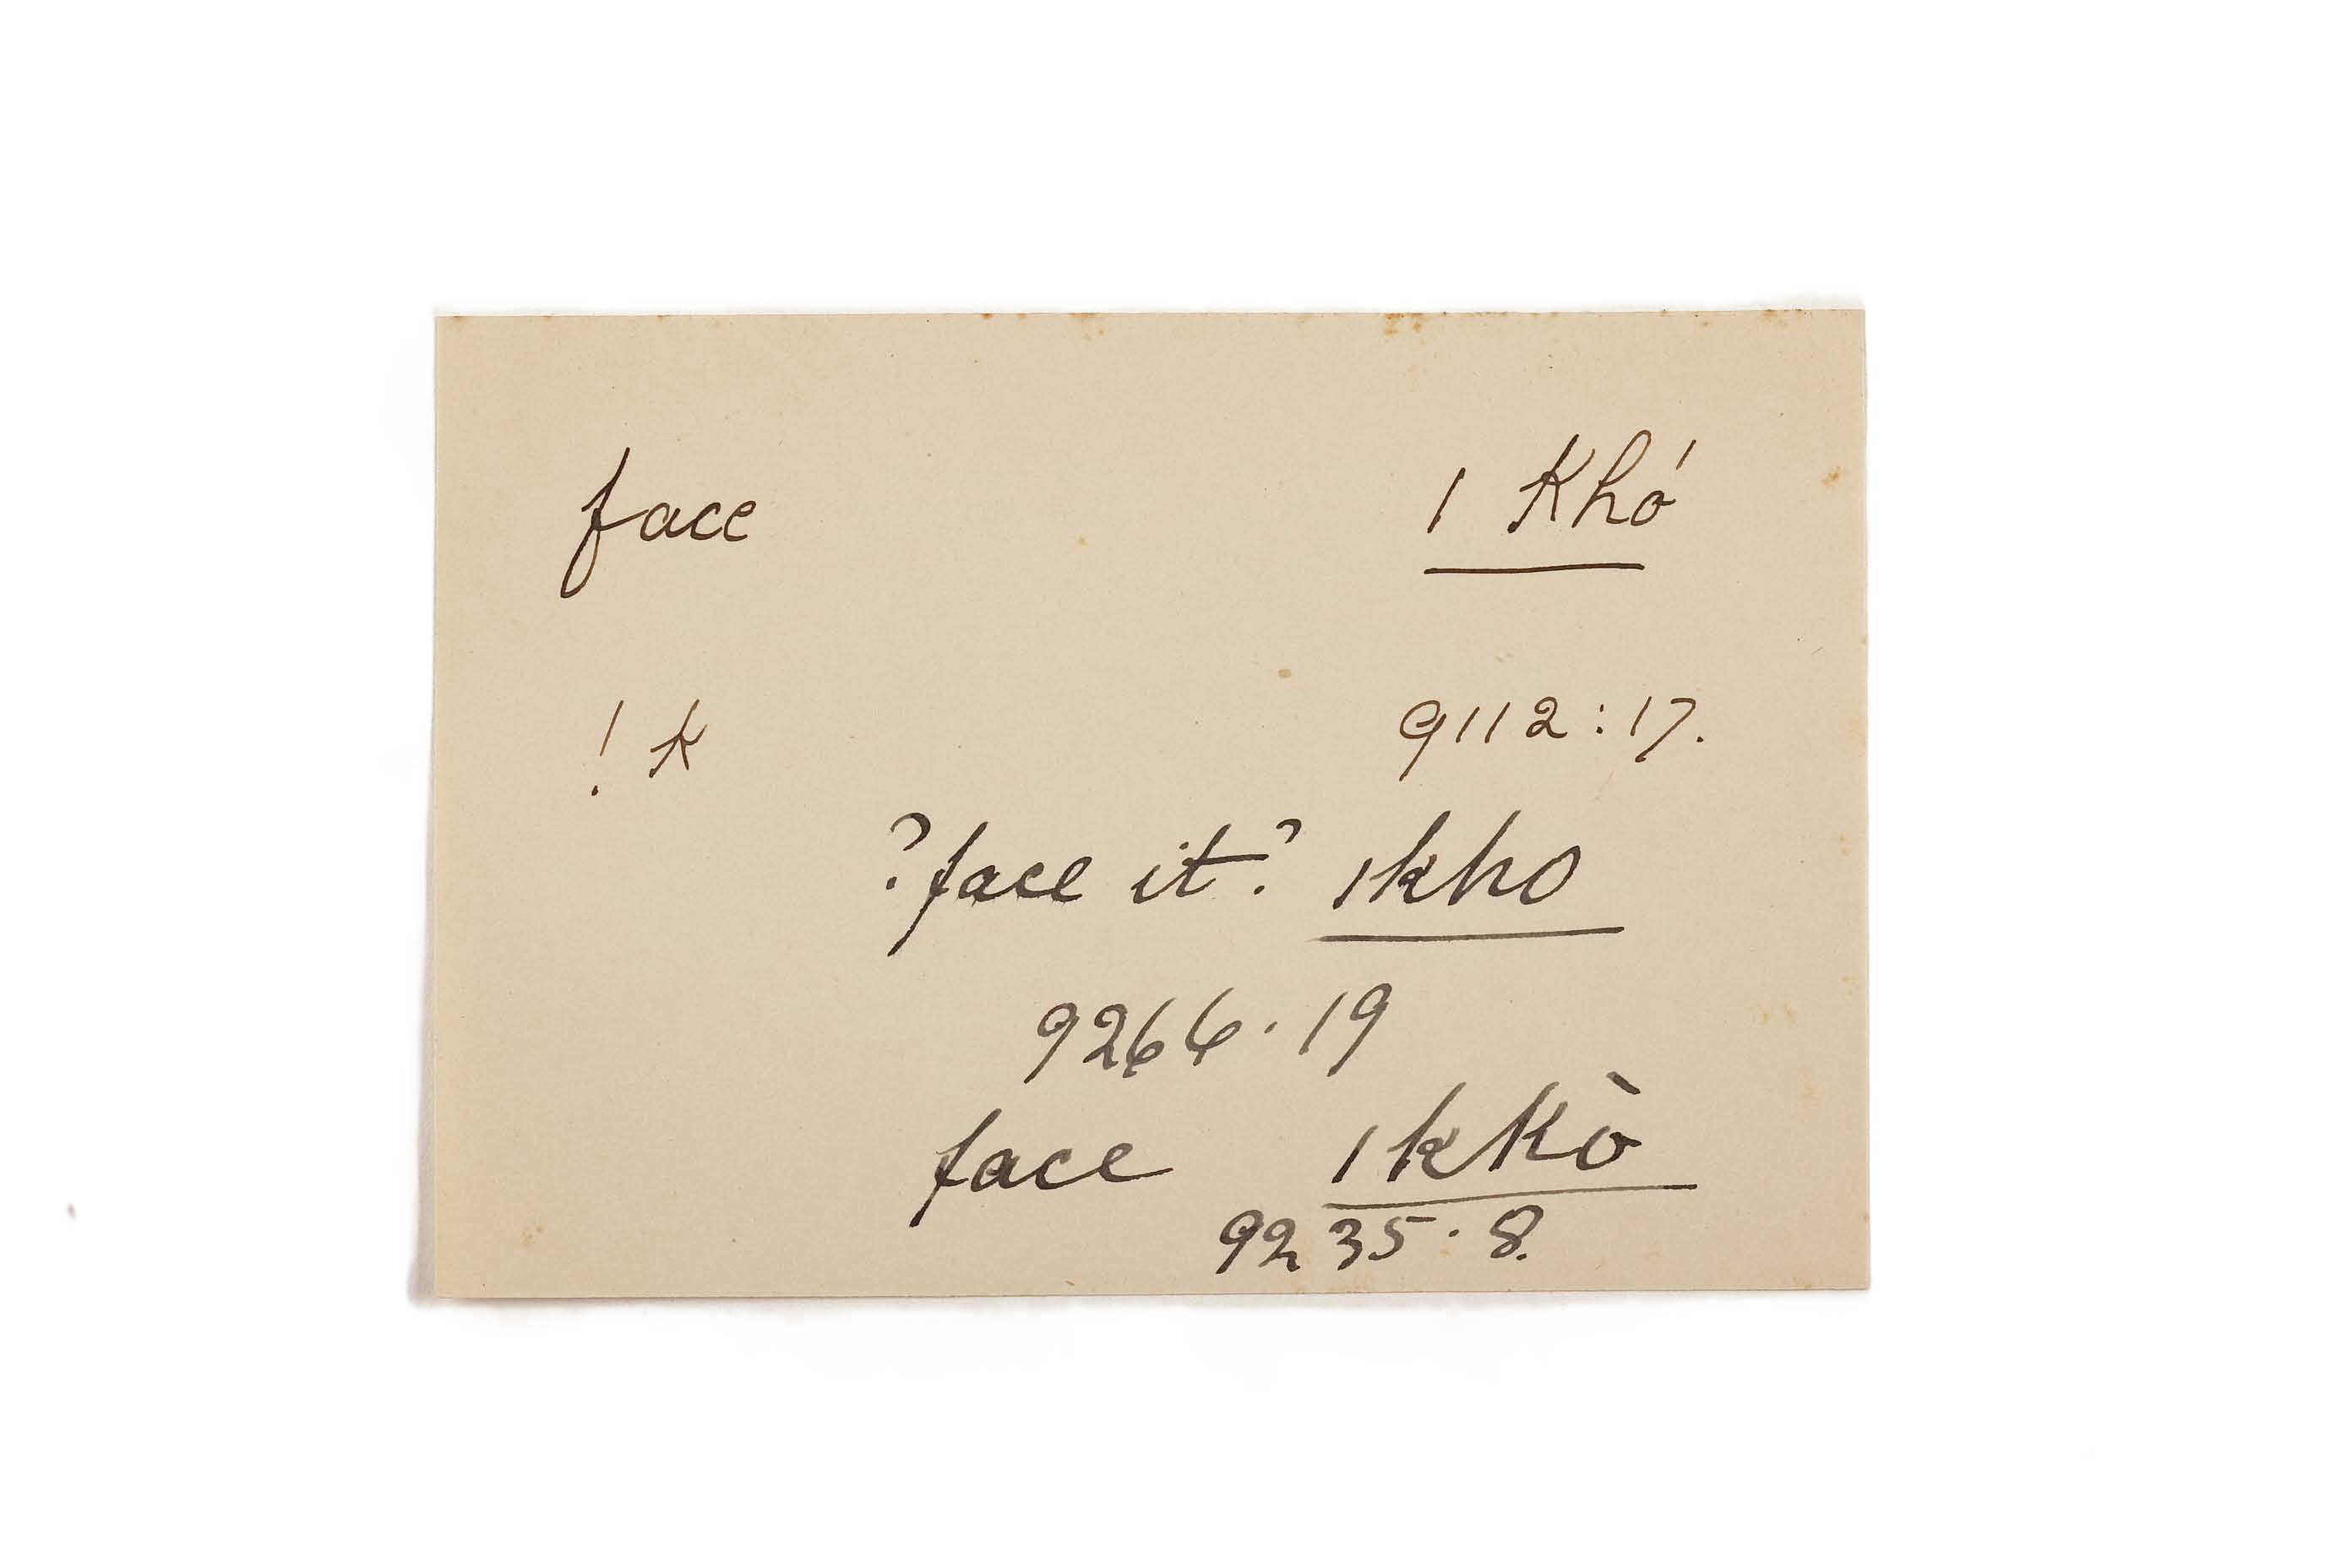 face ǀ Khó
! k 9112:17.
?face it? ǀkho
9266.19
face ǀkKò
9235.8.